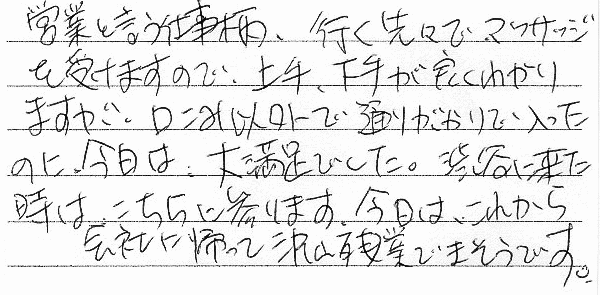 営業と言う仕事柄、行く先々で、マッサージ
を受けますので、上手、下手が良くわかり
ますが、口コミ以外で通りがかりで入った
のに、今日は、大満足でした。渋谷に来た
時は、こちらに参ります。今日は、これから
会社に帰って沢山残業できそうです。